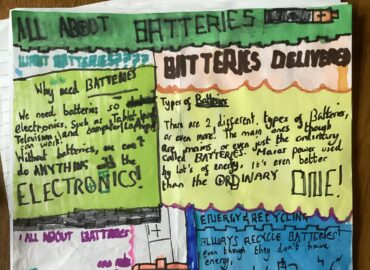 ALL ABOUT BATTERIES
WHAT BATTERIES????
BATTERIES DELIVERED
Why need BATTERIES
We need batteries so
electronics, Such as Tablet,
Television, and computer (Laptop)
can work.
Without batteries, we can't
do ANYTHING
ELECTRONICS!
Types of Batteries
There are 2, different, types of Batteries,
or even more. The main ones though
are mains, or even just the ordinary
called BATTERIES. Mains power used
by lot's of energy, it's even better
than the ORDINARY
ONE!
ALL ABOUT BATTERIES
ENERGY & RECYCLING
ALWAYS RECYCLE BATTERIES!
Even though they don't have
energy,